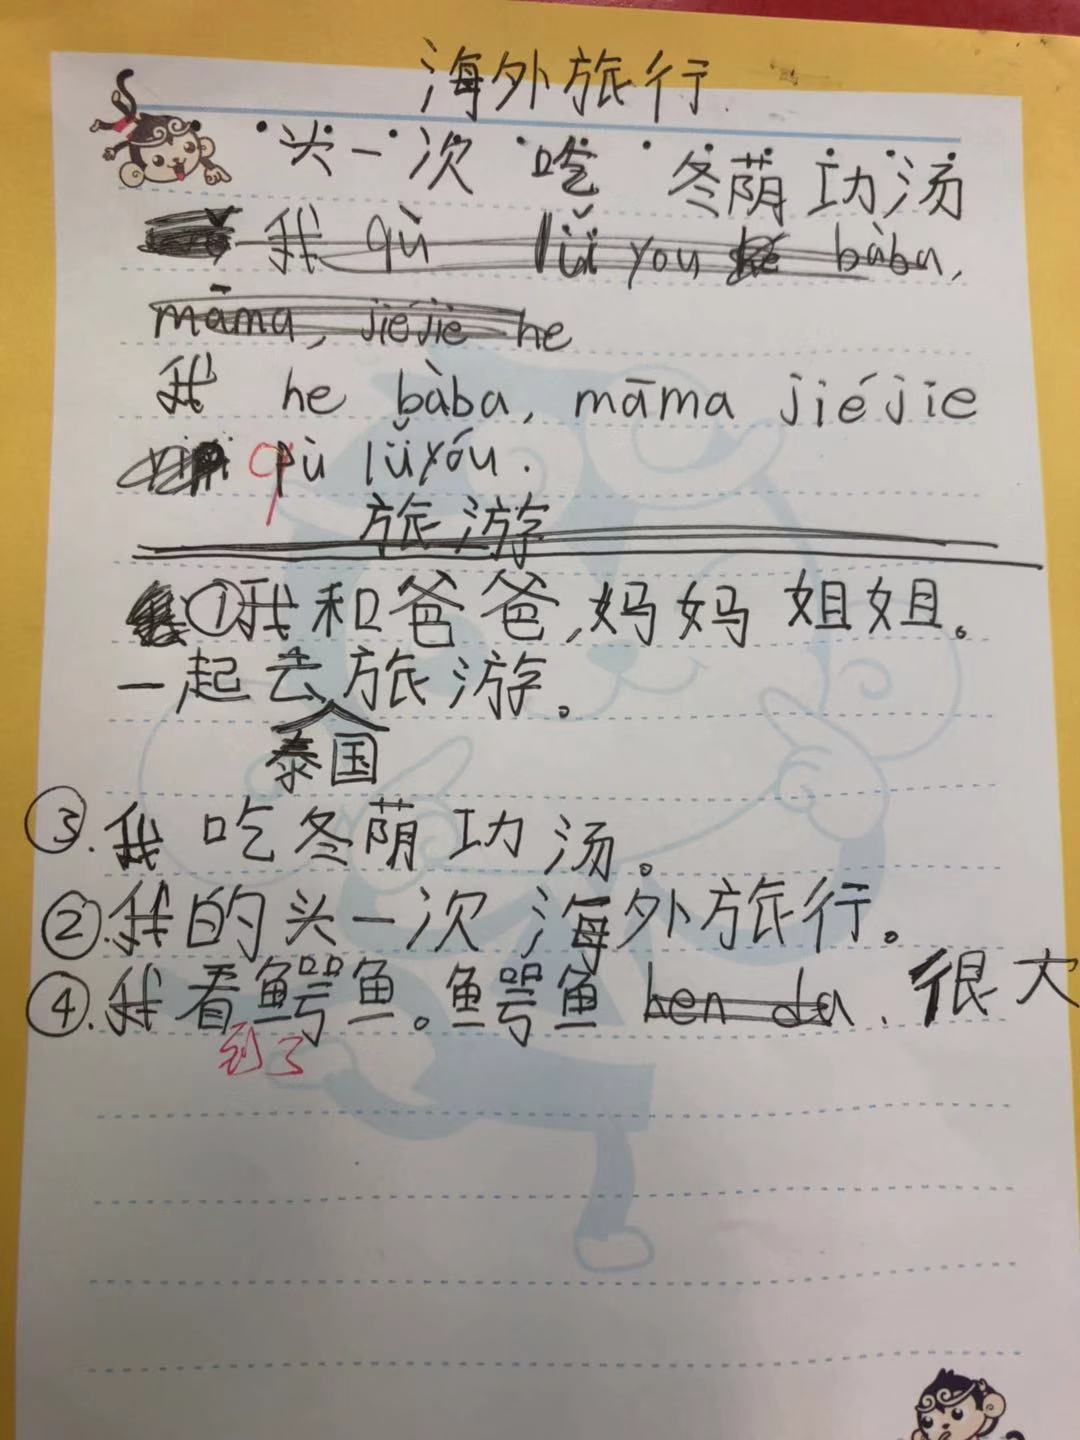 海外旅行
头一次 吃 冬荫功汤
我 qù lǚ you he bàba,
māma, jiéjie he
我 he bàba, māma jiéjie
qù lǚyóu.
旅游
①我和爸爸,妈妈 姐姐。
一起去旅游。
泰国
③.我 吃冬荫功汤。
②.我的头一次 海外旅行。
④.我看鳄鱼。鳄鱼 hen da. 很大
到了